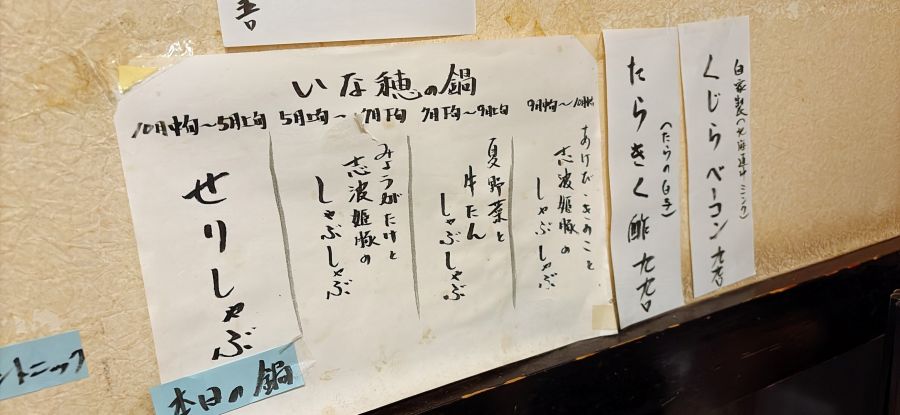 いな穂の鍋
10月中旬〜5月上旬
せりしゃぶ
本日の鍋
5月上旬〜7月下旬
みょうがたけと
志波姫豚の
しゃぶしゃぶ
7月下旬〜9月上旬
夏野菜と
牛たん
しゃぶしゃぶ
9月中旬〜10月
あけび きのこと
志波姫豚の
しゃぶしゃぶ
たらきく酢 九九〇
(たらの白子)
くじらベーコン 九百
自家製(北海道ミンク)
トニック